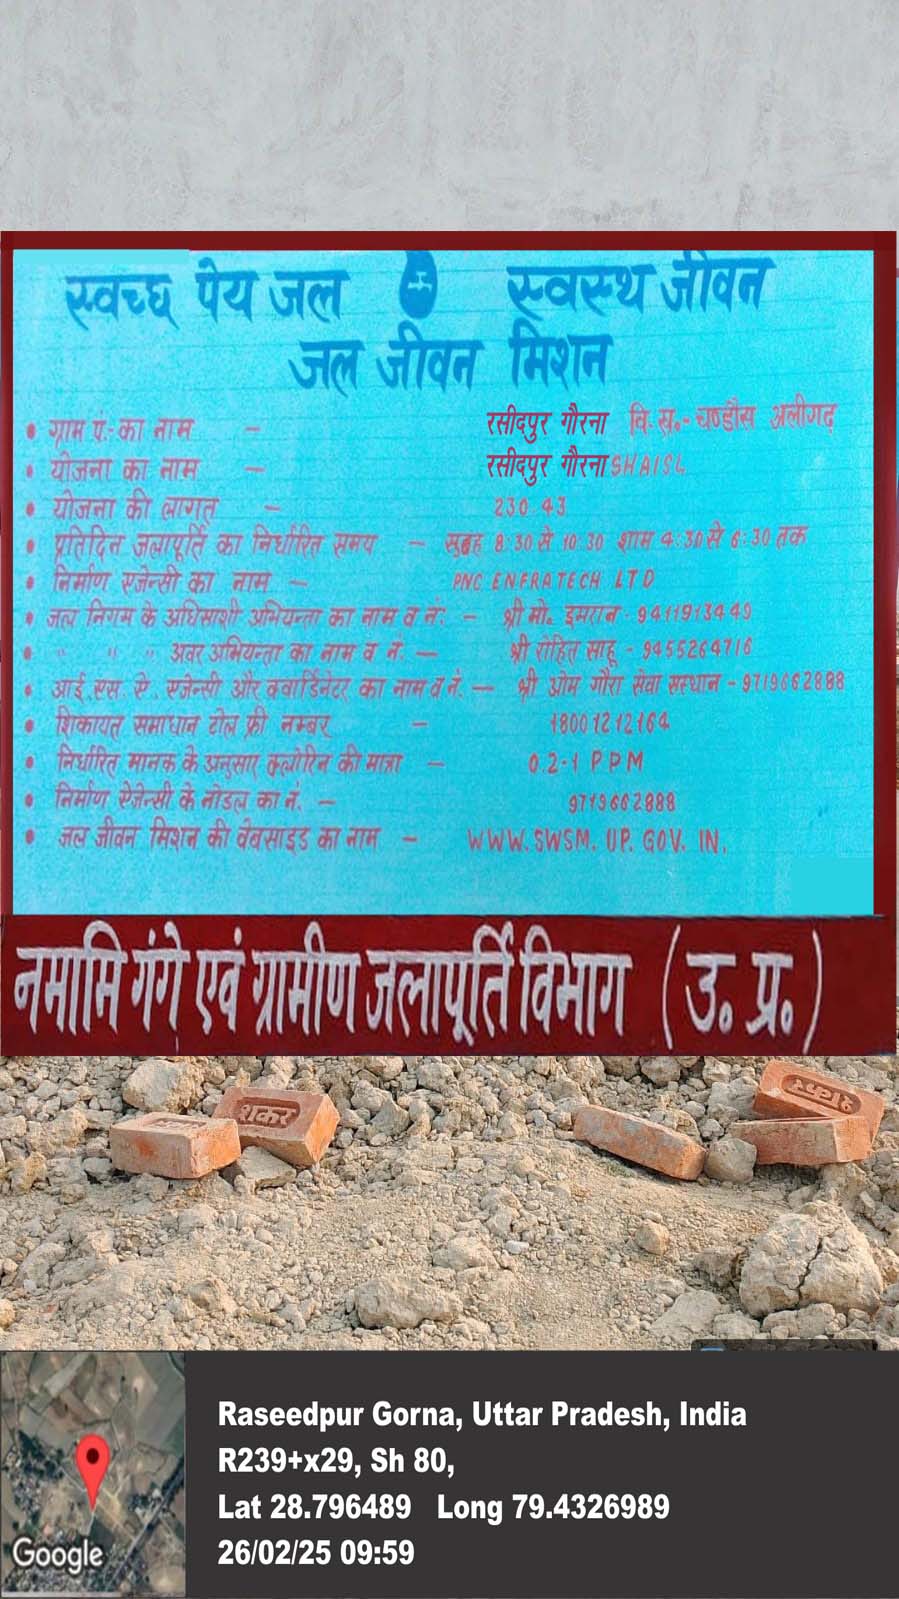 स्वच्छ पेय जल स्वस्थ जीवन
जल जीवन मिशन
• ग्राम पं.- का नाम – रसीदपुर गौरना वि. ख.- चण्डौस अलीगढ़
• योजना का नाम – रसीदपुर गौरना SHAISL
• योजना की लागत – 230 43
• प्रतिदिन जलापूर्ति का निर्धारित समय – सुबह 8:30 से 10:30 शाम 4:30 से 6:30 तक
• निर्माण एजेन्सी का नाम – PNC ENFRATECH LTD
• जल निगम के अधिसाशी अभियन्ता का नाम व नं: – श्री मो. इमरान - 9411913449
• " " " अवर अभियन्ता का नाम व नं. – श्री रोहित साहू - 9455264716
• आई. एस. ए. एजेन्सी और क्वार्डिनेटर का नाम व नं. – श्री ओम गौरा सेवा सस्थान - 9719662888
• शिकायत समाधान टोल फ्री नम्बर – 18001212164
• निर्धारित मानक के अनुसार क्लोरिन की मात्रा – 0.2-1 PPM
• निर्माण ऐजेन्सी के नोडल का नं. – 9719662888
• जल जीवन मिशन की वेबसाइड का नाम – WWW. SWSM. UP. GOV. IN.
नमामि गंगे एवं ग्रामीण जलापूर्ति विभाग (उ. प्र.)
शंकर
Raseedpur Gorna, Uttar Pradesh, India
R239+x29, Sh 80,
Lat 28.796489 Long 79.4326989
26/02/25 09:59
Google